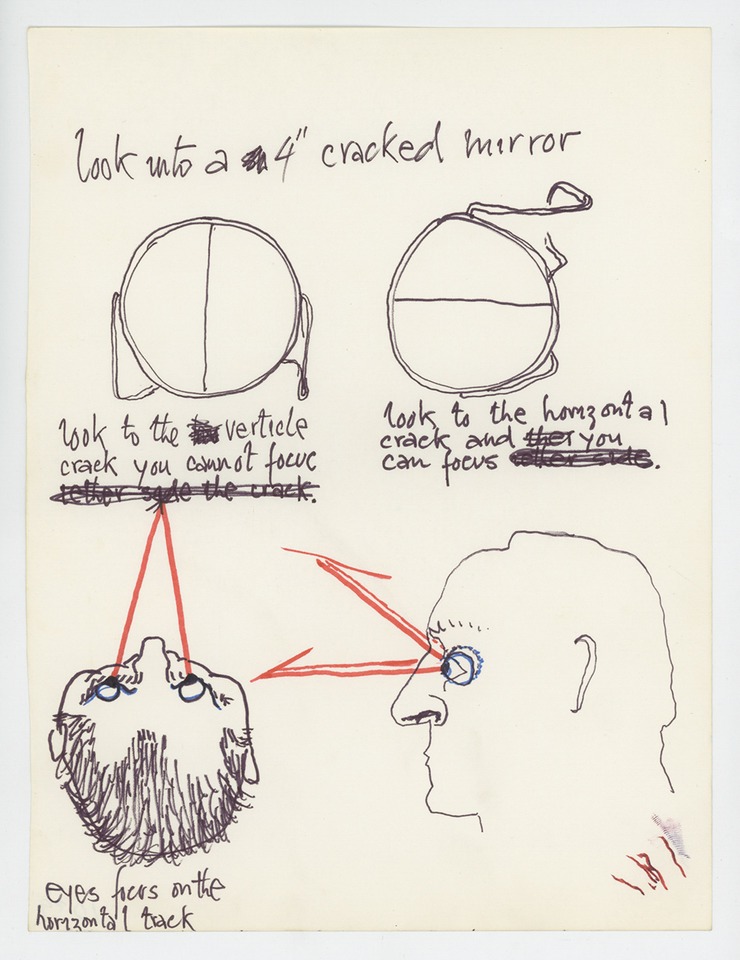 look into a 4" cracked mirror
look to the verticle
crack you cannot focuc
side the crack.
look to the horizontal
crack and ther you
can focus side.
eyes focus on the
horizontal track